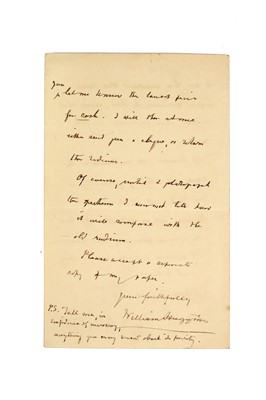 you
to let me know the lowest price
for cash. I will then at once
either send you a cheque, or return
the radium.
Of course, until I photograph
the spectrum I can not tell how
it will compare with the
old radium.
Please accept a separate
copy of my paper
yours faithfully
William Huggins
P.S. Tell me, in
confidence if necessary,
anything you may know about its purity.